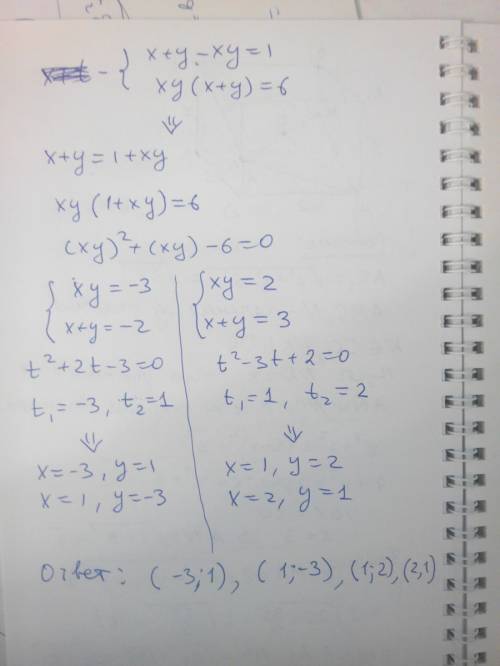 { x+y-xy=1
xy(x+y)=6
⇓
x+y=1+xy
xy(1+xy)=6
(xy)²+(xy)-6=0
{ xy=-3
x+y=-2
t²+2t-3=0
t₁=-3, t₂=1
⇓
x=-3, y=1
x=1, y=-3
{ xy=2
x+y=3
t²-3t+2=0
t₁=1, t₂=2
⇓
x=1, y=2
x=2, y=1
Ответ: (-3;1), (1;-3), (1;2), (2,1)